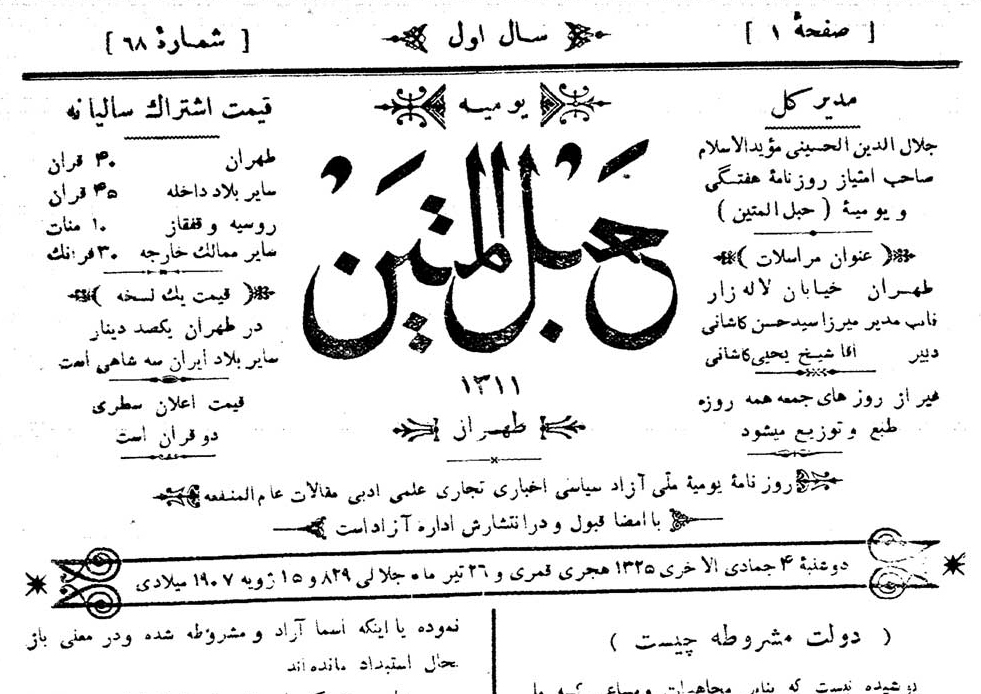 [ صفحهٔ ۱ ]
سال اول
[ شمارهٔ ۶۸ ]
مدیر کل
جلال الدین الحسینی مؤیدالاسلام
صاحب امتیاز روزنامهٔ هفتگی
و یومیهٔ ( حبل المتین )
( عنوان مراسلات )
طهران خیابان لاله زار
نایب مدیر میرزا سیدحسن کاشانی
دبیر آقا شیخ یحیی کاشانی
غیر از روز های جمعه همه روزه
طبع و توزیع میشود
یومیه
حبل المتین
۱۳۱۱
طهران
قیمت اشتراك سالیانه
طهران ۴۰ قران
سایر بلاد داخله ۴۵ قران
روسیه و قفقاز ۱۰ منات
سایر ممالك خارجه ۳۰ فرانك
( قیمت یك نسخه )
در طهران یکصد دینار
سایر بلاد ایران سه شاهی است
قیمت اعلان سطری
دو قران است
روزنامهٔ یومیهٔ ملّی آزاد سیاسی اخباری تجاری علمی ادبی مقالات عام‌المنفعه
با امضا قبول و در انتشارش اداره آزاد است
دوشنبهٔ ۴ جمادی الاخری ۱۳۲۵ هجری قمری و ۲۶ تیر ماه جلالی ۸۲۹ و ۱۵ ژویه ۱۹۰۷ میلادی
( دولت مشروطه چیست )
پوشیده نیست که بنابر مجاهدات و مساعی که ملی
نموده یا اینکه اسما آزاد و مشروطه شده و در معنی باز
بحال استبداد مانده‌اند